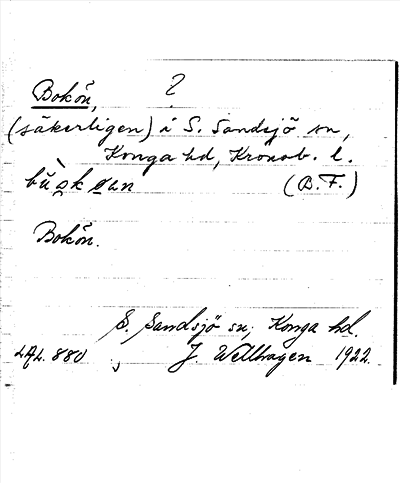 Bokön, ?
(säkerligen) i S. Sandsjö sn,
Konga hd, Kronob. l.
(B.F.)
Bokön.
S. Sandsjö sn, Konga hd.
LAL. 880, J. Wellhagen 1922.